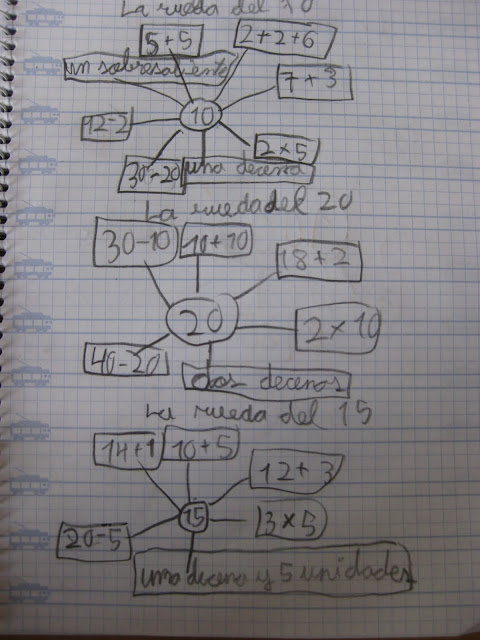 La rueda del 10
5+5
2+2+6
un sobresaliente
7+3
12-2
10
2x5
30-20
una decena
La rueda del 20
30-10
10+10
18+2
20
2x10
40-20
dos decenas
La rueda del 15
14+1
10+5
12+3
15
3x5
20-5
una decena y 5 unidades